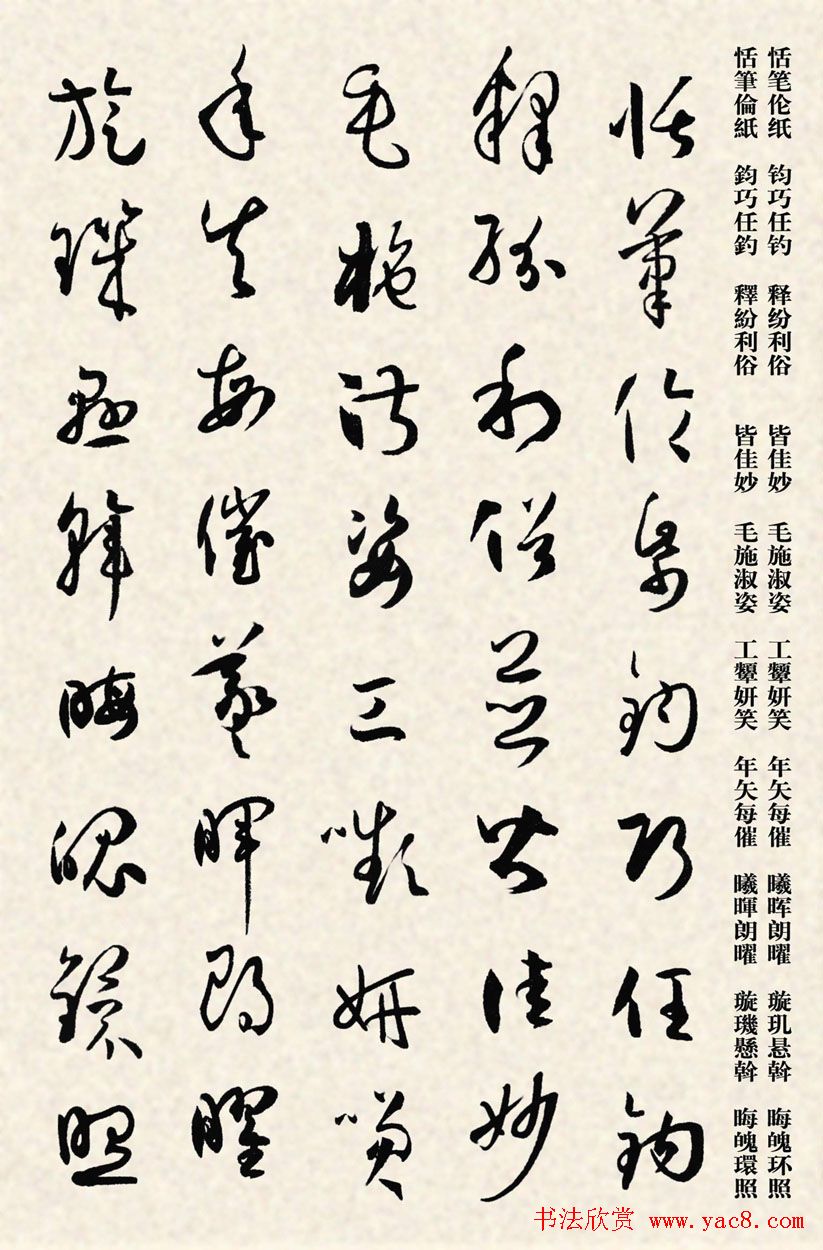 恬笔伦纸 钧巧任钓 释纷利俗 皆佳妙 毛施淑姿 工颦妍笑 年矢每催 曦晖朗曜 璇玑悬斡 晦魄环照
恬筆倫紙 鈞巧任釣 釋紛利俗 皆佳妙 毛施淑姿 工顰妍笑 年矢每催 曦暉朗曜 璇璣懸斡 晦魄環照
恬筆倫紙鈞巧任釣
釋紛利俗並皆佳妙
毛施淑姿工嚬妍咲
年矢每催羲暉朗曜
旋璣懸斡晦魄環照
书法欣赏 www.yac8.com